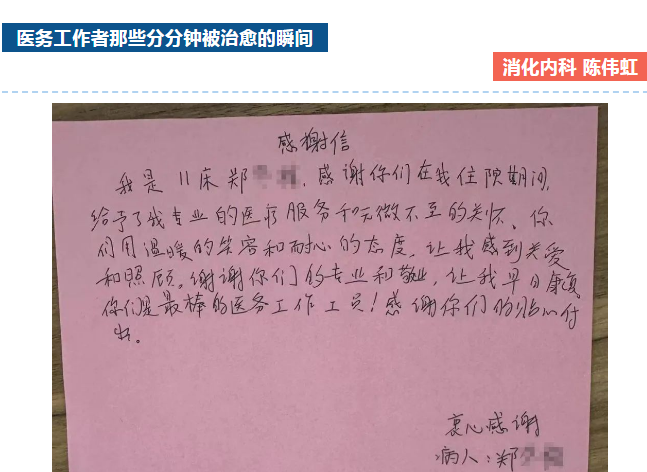 医务工作者那些分分钟被治愈的瞬间
消化内科 陈伟虹
感谢信
我是11床郑 ，感谢你们在我住院期间，
给予了我专业的医疗服务和无微不至的关怀、你
们用温暖的笑容和耐心的态度，让我感到关爱
和照顾。谢谢你们的专业和敬业，让我早日康复
你们是最棒的医务工作工员！感谢你们的贴心付
出。
衷心感谢
病人：郑